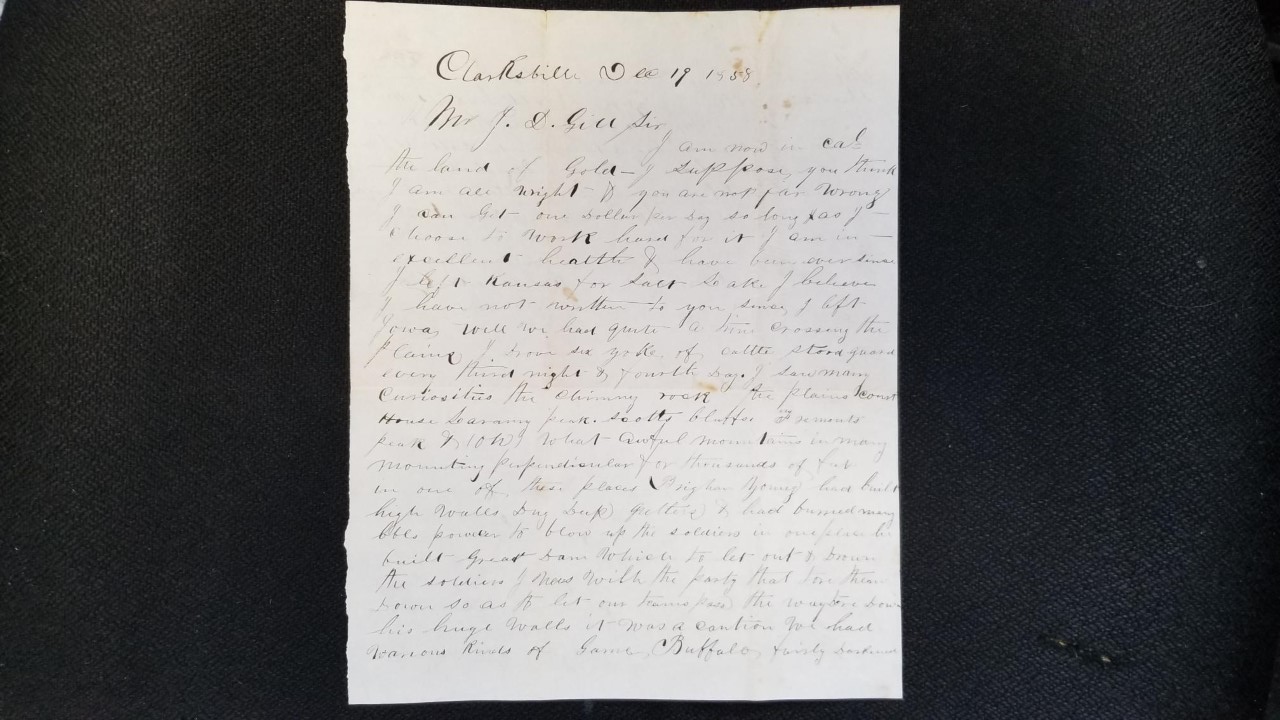 Clarksville Dec 19 1858
Mr J. D. Gill Sir
I am now in cal
the land of Gold - I suppose you think
I am all wright & you are not far wrong
I can Get one Dollar per Day so long as I
choose to work hard for it I am in
excellent health & have been ever since
I left Kansas for Salt Lake I believe
I have not written to you since I left
Iowa, well we had quite a time crossing the
plains I Drove six yoke of cattle stood guard
every third night & fourth Day. I saw many
curiositis the chimny rock the plains court
House Laramy peak. scotts bluffs Frements
peak & (Oh) What awful mountains in many
mounting perpendicular for thousands of feet
in one of these places Brigham Young had built
high walls Dug Deep & had burried many
bbls powder to blow up the soldiers in one place he
built Great Dam Which to let out & Drown
the soldiers I was With the party that tore them
Down so as to let our trains pass the way tore Down
his huge Walls it was a caution We had
various kinds of Game Buffalo fairly